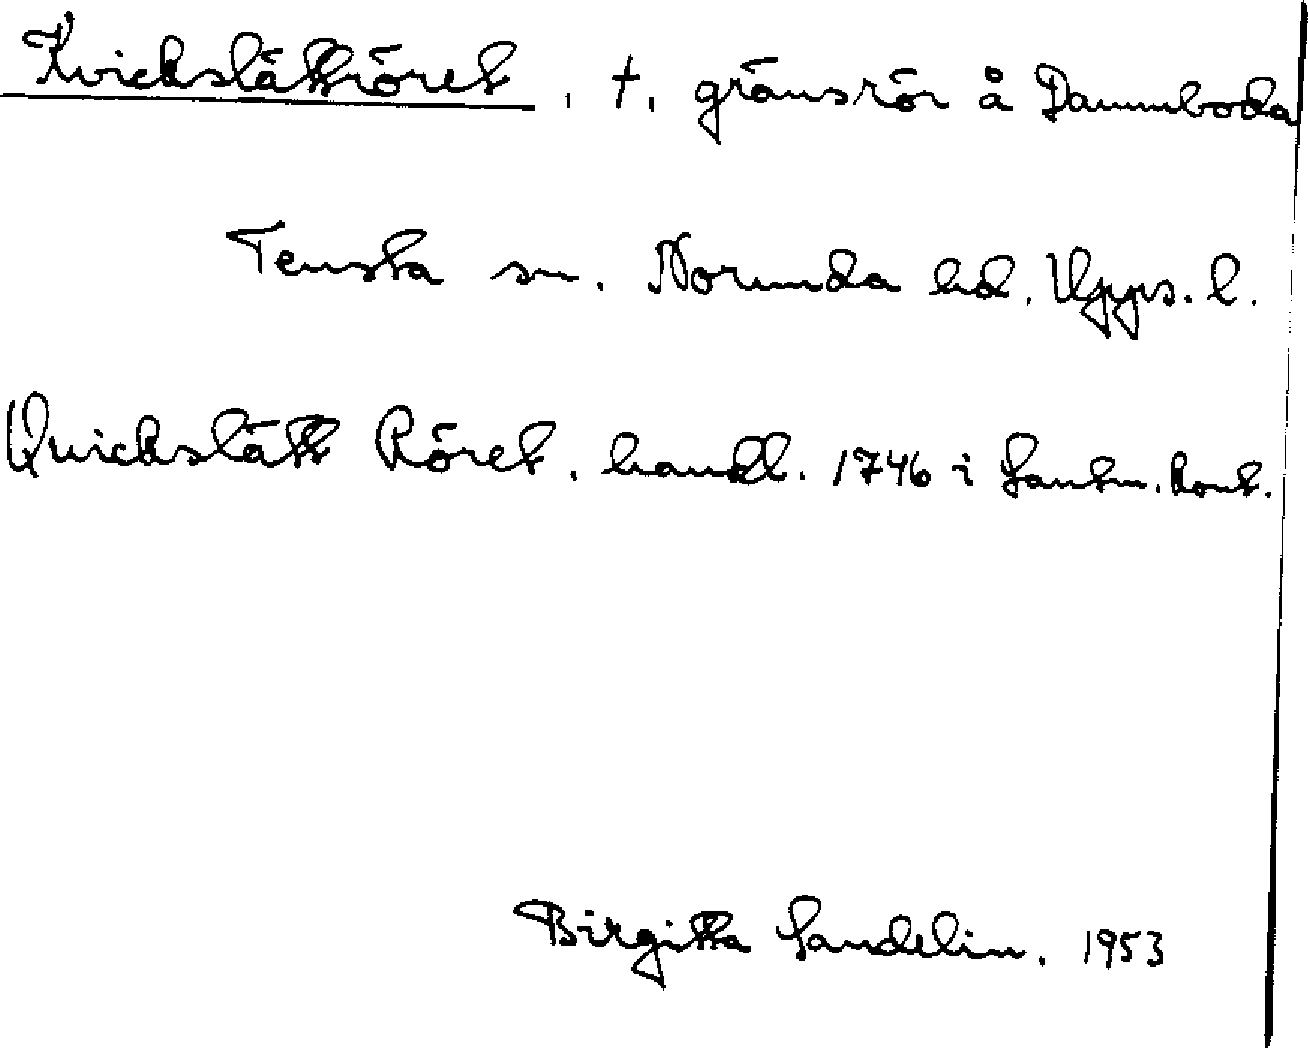 Kvickslättröret, †, gränsrör å Dammboda
Tensta sn. Norunda hd. Upps. l.
Quickslätt Röret. handl. 1746 i Lantm. kont.
Birgitta Sandelin. 1953